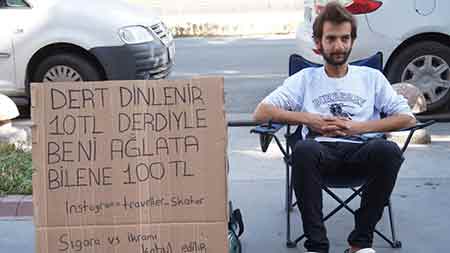 DERT DİNLENİR
10TL DERDİYLE
BENİ AĞLATA
BİLENE 100 TL
Instagram=traveller_Skater
Sigara vs ikramı
kabul edilir